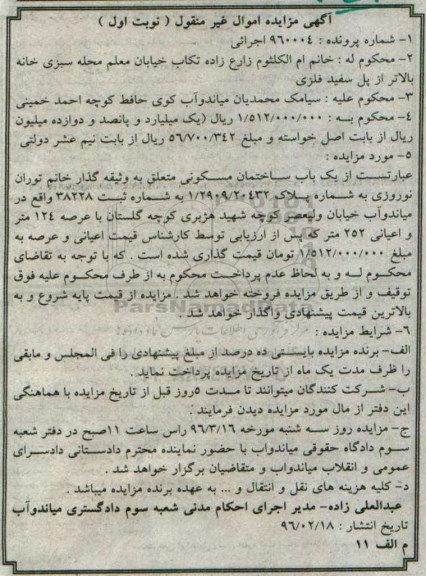 آگهی مزایده اموال غیر منقول ( نوبت اول )
۱- شماره پرونده : ۹۶۰۰۰۴ اجرائی
۲- محکوم له : خانم ام الکلثوم زارع زاده تکاب خیابان معلم محله سبزی خانه
بالاتر از پل سفید فلزی
۳- محکوم علیه : سیامک محمدیان میاندوآب کوی حافظ کوچه احمد خمینی
۴- محکوم بـه : ۱/۵۱۲/۰۰۰/۰۰۰ ریال (یک میلیارد و پانصد و دوازده میلیون
ریال از بابت اصل خواسته و مبلغ ۵۶/۷۰۰/۳۴۲ ریال از بابت نیم عشر دولتی
۵- مورد مزایده :
عبارتست از یک باب ساختمان مسکونی متعلق به وثیقه گذار خانم توران
نوروزی به شماره پلاک ۱/۲۹۰۹/۲۰۴۳۲ به شماره ثبت ۳۸۲۲۸ واقع در
میاندوآب خیابان ولیعصر کوچه شهید هژبری کوچه گلستان با عرصه ۱۲۴ متر
و اعیانی ۲۵۲ متر که پس از ارزیابی توسط کارشناس قیمت اعیانی و عرصه به
مبلغ ۱/۵۱۲/۰۰۰/۰۰۰ تومان قیمت گذاری شده است . که با توجه به تقاضای
محکوم لـه و به لحاظ عدم پرداخت محکوم به از طرف محکوم علیه فوق
توقیف و از طریق مزایده فروخته خواهد شد . مزایده از قیمت پایه شروع و به
بالاترین قیمت پیشنهادی واگذار خواهد شد .
۶- شرایط مزایده :
الف- برنده مزایده بایستی ده درصد از مبلغ پیشنهادی را فی المجلس و مابقی
را ظرف مدت یک ماه از تاریخ مزایده پرداخت نماید .
ب- شرکت کنندگان میتوانند تا مدت ۵روز قبل از تاریخ مزایده با هماهنگی
این دفتر از مال مورد مزایده دیدن فرمایند .
ج- مزایده روز سه شنبه مورخه ۹۶/۳/۱۶ راس ساعت ۱۱صبح در دفتر شعبه
سوم دادگاه حقوقی میاندواب با حضور نماینده محترم دادستانی دادسرای
عمومی و انقلاب میاندواب و متقاضیان برگزار خواهد شد .
د- کلیه هزینه های نقل و انتقال و ... به عهده برنده مزایده میباشد .
عبدالعلی زاده- مدیر اجرای احکام مدنی شعبه سوم دادگستری میاندوآب
تاریخ انتشار : ۹۶/۰۲/۱۸
م الف ۱۱